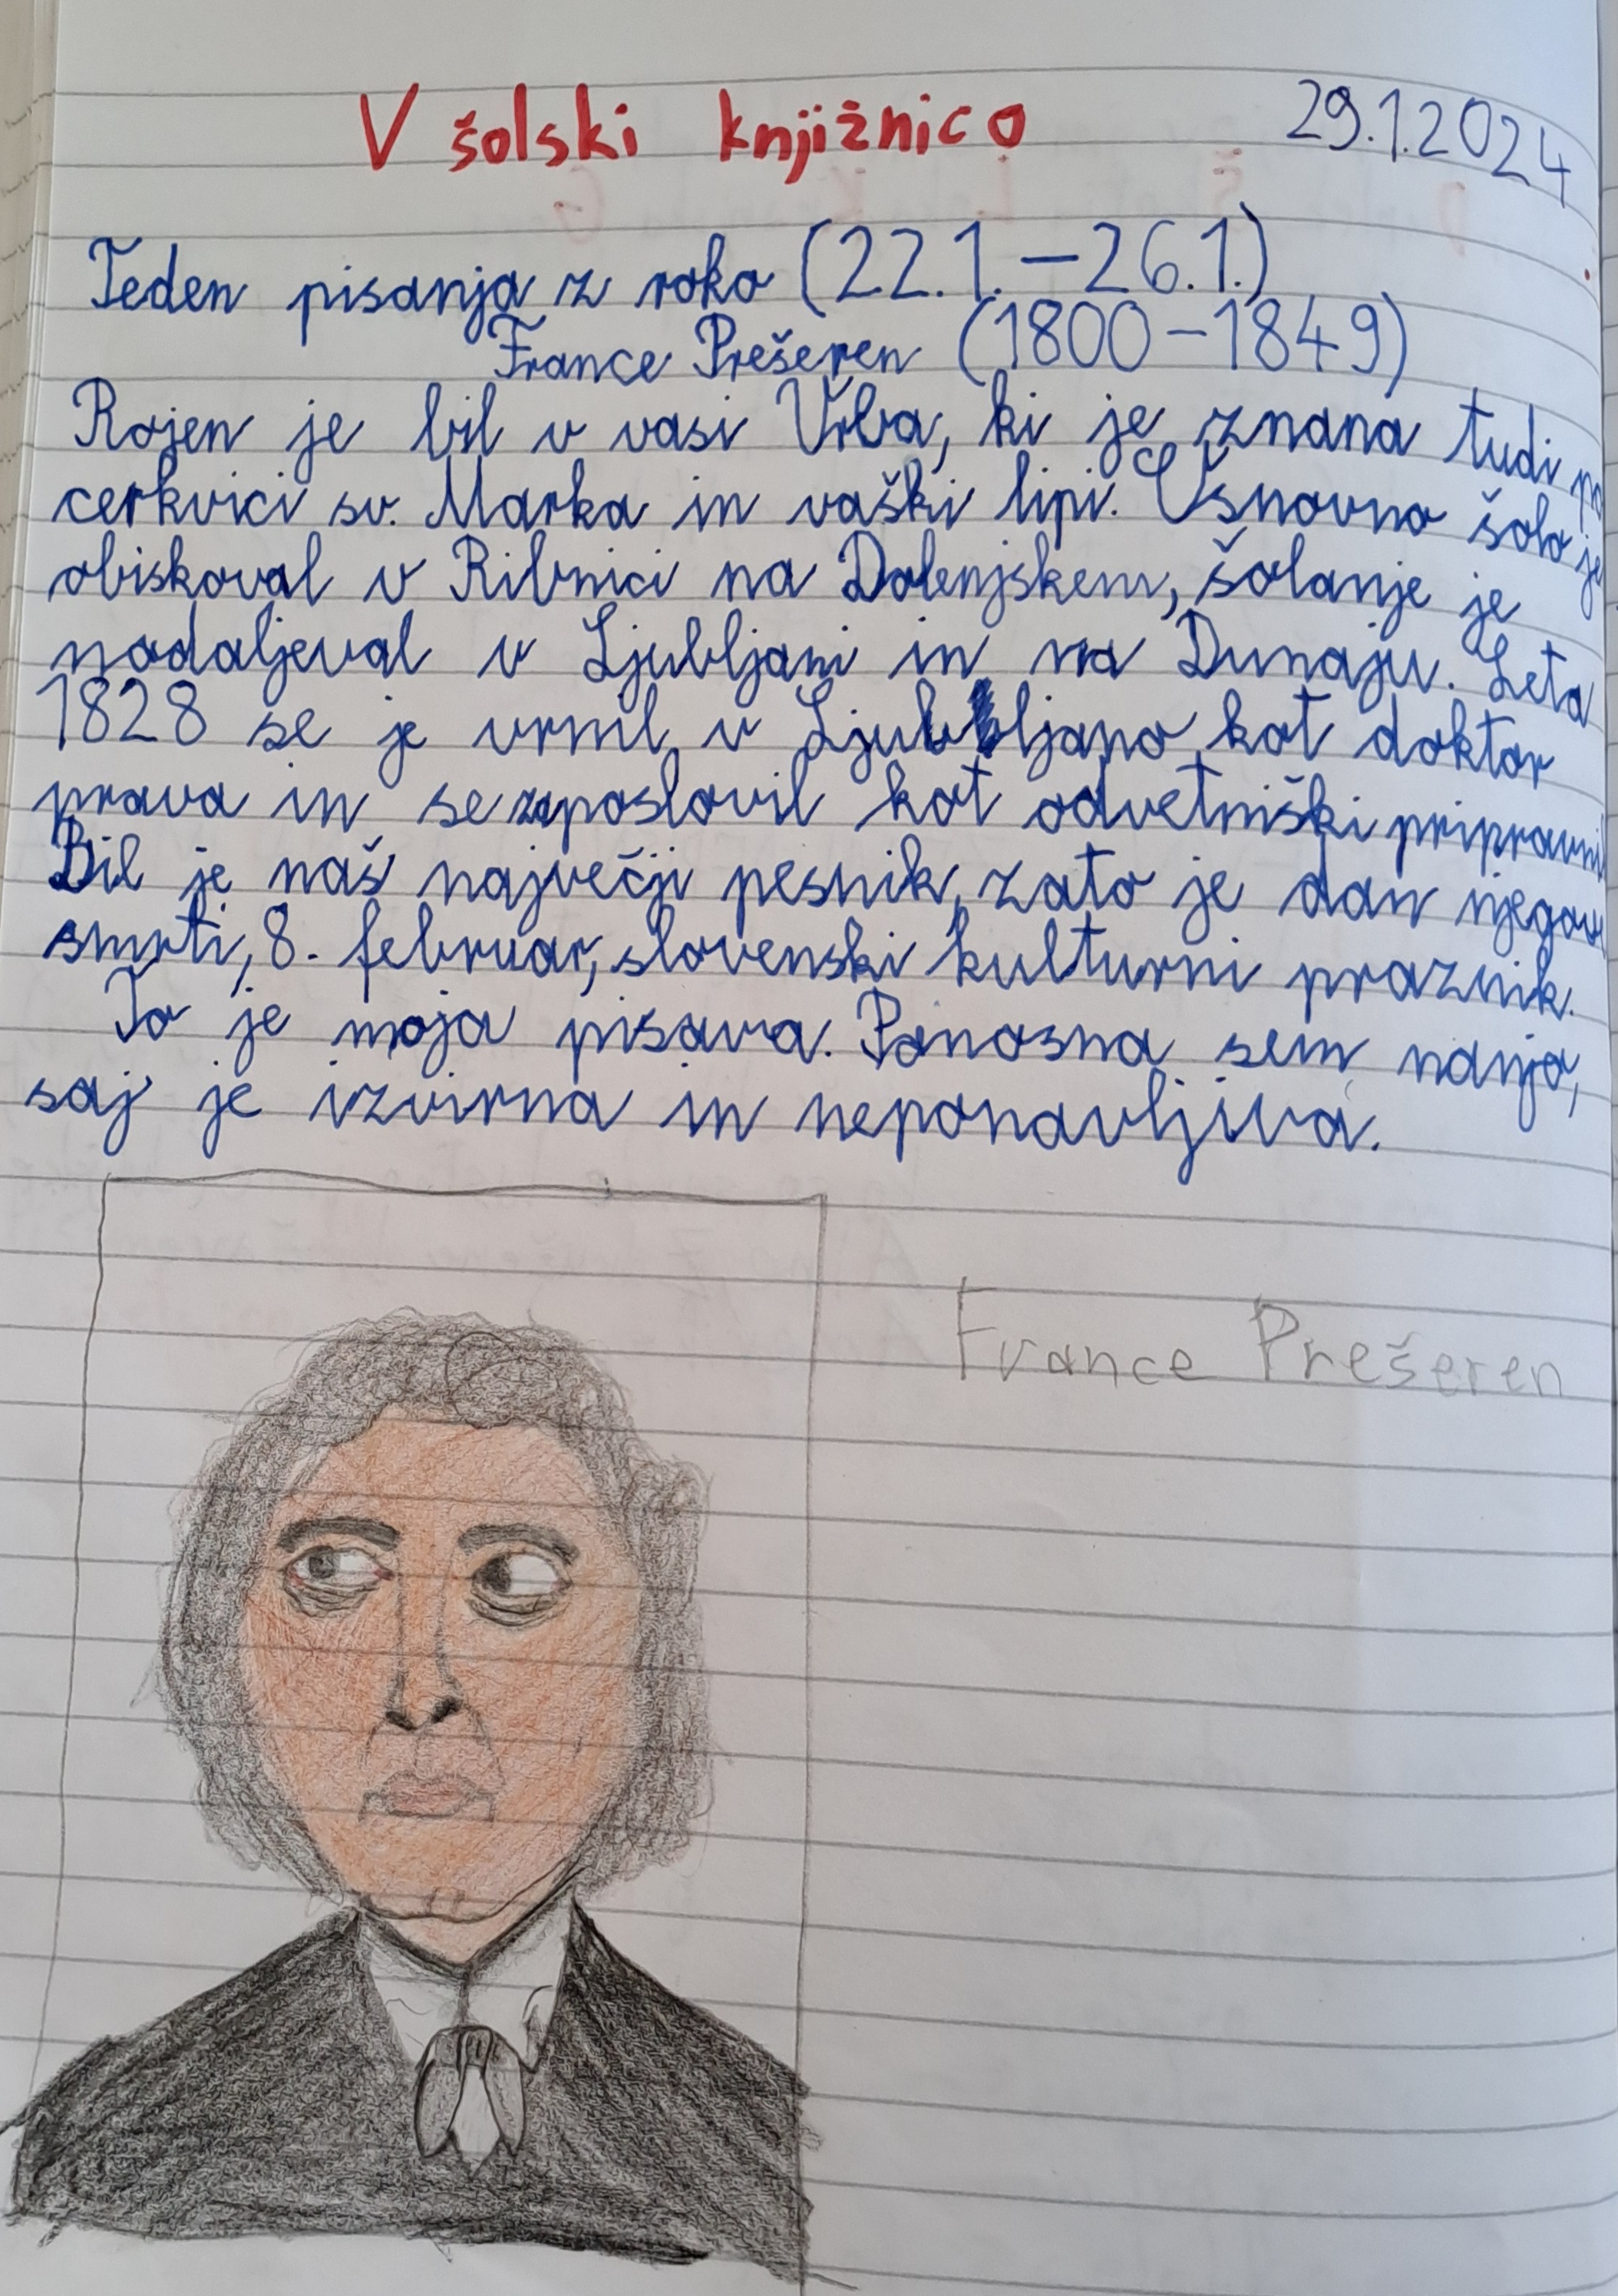 V šolski knjižnico
29.1.2024
Teden pisanja z roko (22.1.–26.1.)
France Prešeren (1800–1849)
Rojen je bil v vasi Vrba, ki je znana tudi po
cerkvici sv. Marka in vaški lipi. Osnovno šolo je
obiskoval v Ribnici na Dolenjskem, šolanje je
nadaljeval v Ljubljani in na Dunaju. Leta
1828 se je vrnil v Ljubljano kot doktor
prava in se zaposlovil kot odvetniški pripravni
Bil je naš največji pesnik, zato je dan njegove
smrti, 8. februar, slovenski kulturni praznik.
To je moja pisava. Ponosna sem nanjo,
saj je izvirna in neponavljiva.
France Prešeren